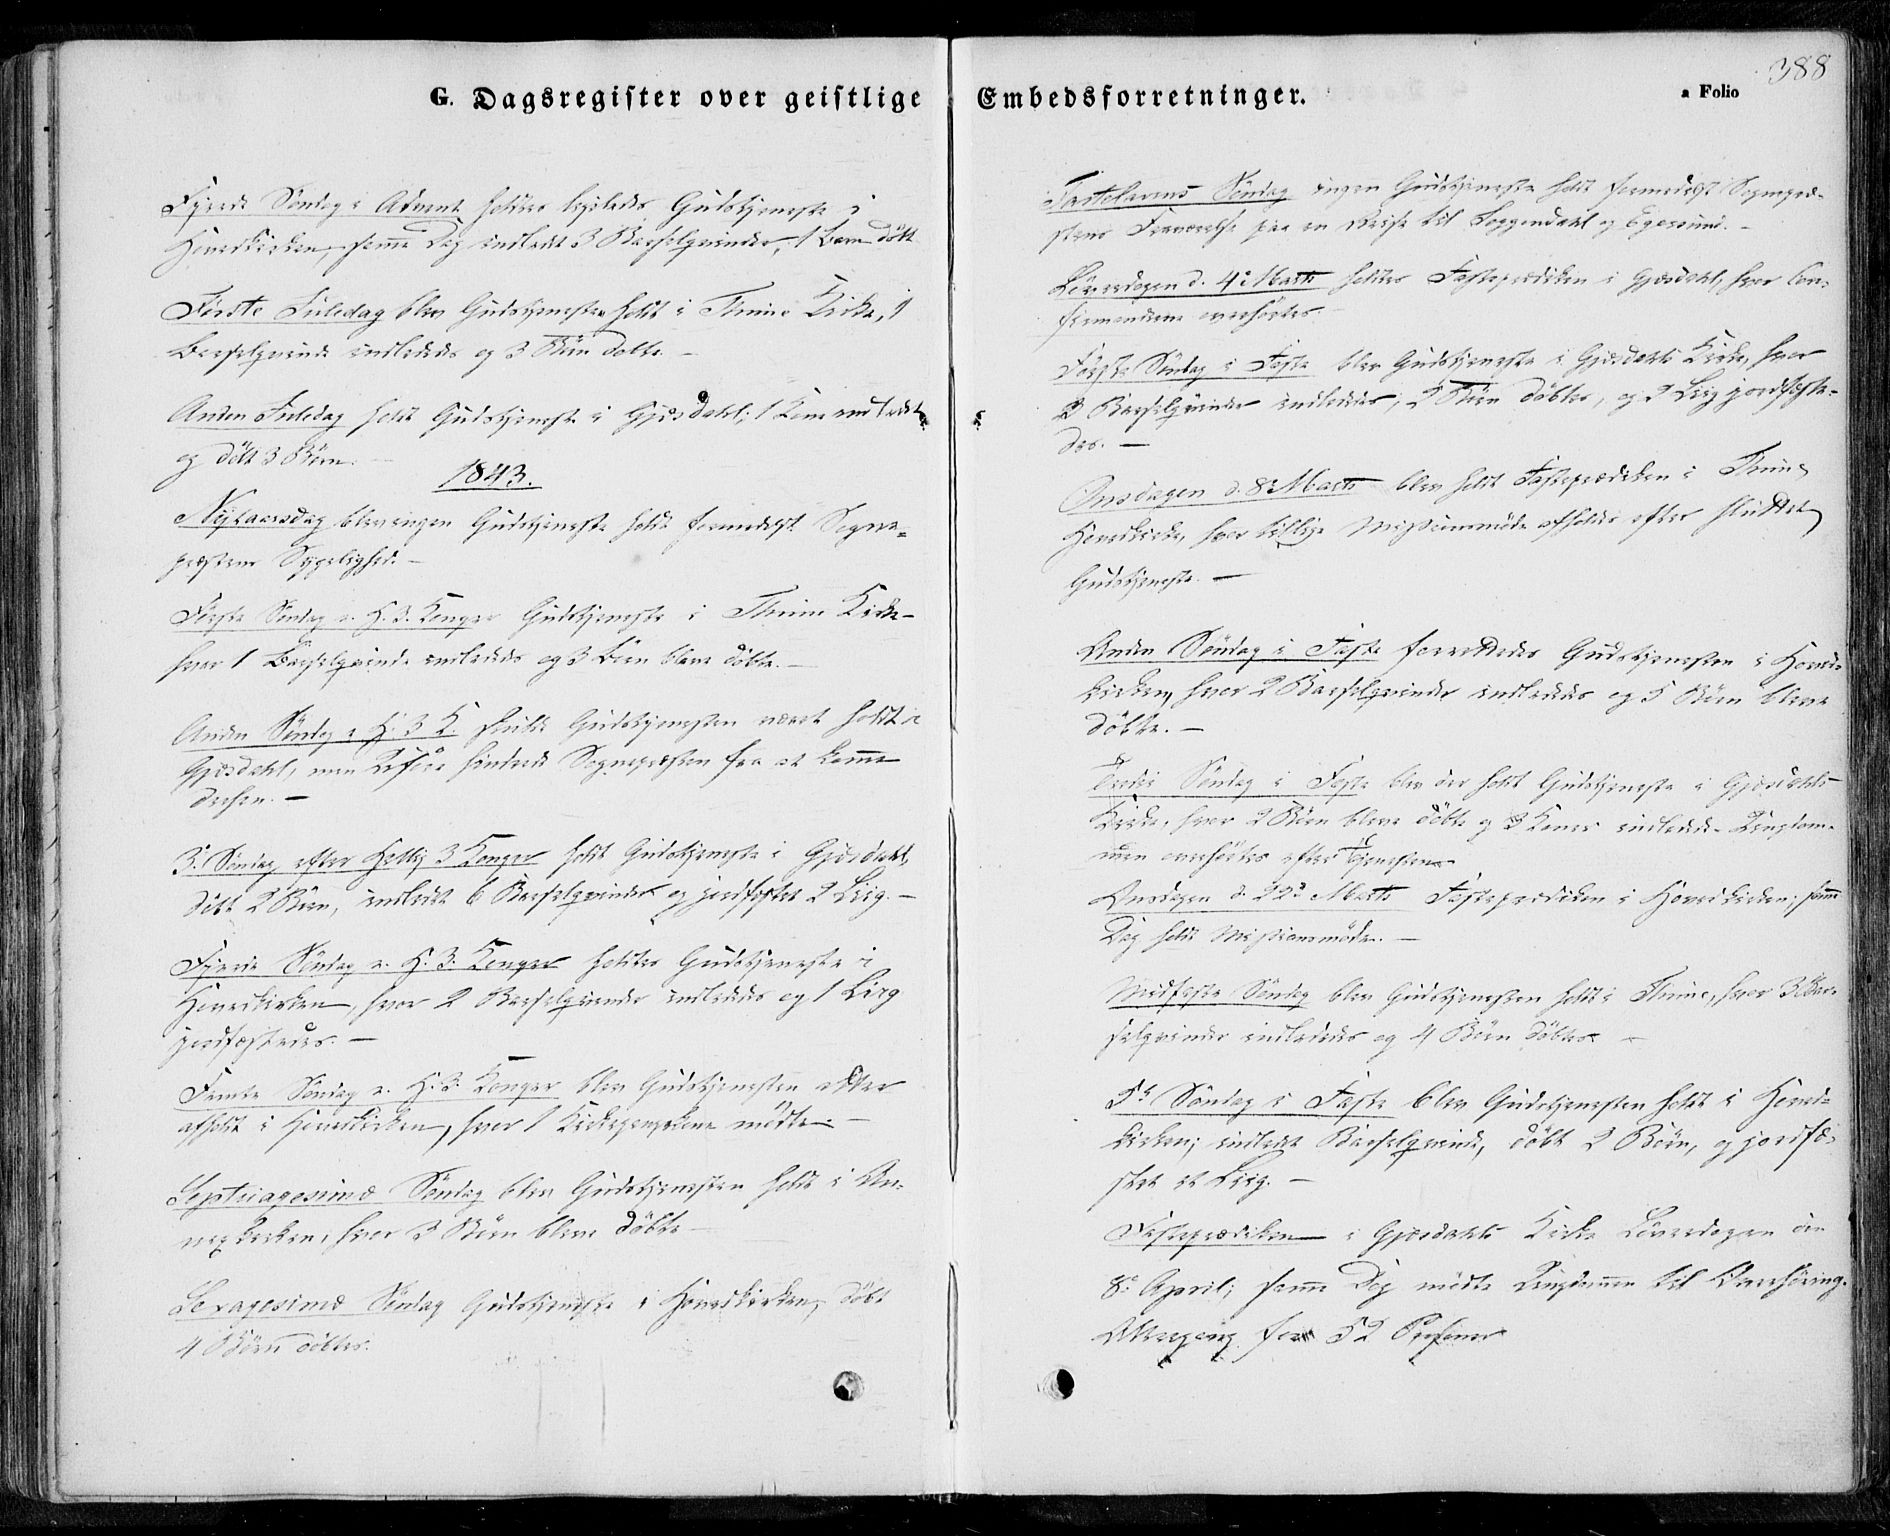 G. Dagsregister over geistlige
Fjerde Søndag i Advent holdtes Gudstjeneste i
Hovedkirken, samme Dag indledt 3 Barselqvinder, 1 Barn døbt
Første Juledag blev Gudstjenesten holdt i Thime Kirke, 1
Barselqvinde indlededs og 3 Børn døbte. –
Anden Juledag holdt Gudstjeneste i Gjesdahl; 1 Kone indledt
og døbt 3 Børn. –
1843.
Nytaarsdag blev ingen Gudstjeneste holdt formedelst Sogne-
præstens Sygelighed. –
Første Søndag e. H. 3. Konger Gudstjeneste i Thime Kirke –
hvor 1 Barselqvinde indlededs og 3 Børn bleve døbte. –
Anden Søndag e. H. 3 K. skulde Gudstjenesten været holdt i
Gjesdahl, men hindrede Sognepræsten fra at komme
derhen. –
3. Søndag efter Hellig 3 Konger holdt Gudstjeneste i Gjesdahl,
døbt 2 Børn, indledt 6 Barselqvinder og jordfæstet 2 Liig. –
Fjerde Søndag e. H. 3. Konger holdtes Gudstjeneste i
Hovedkirken, hvor 2 Barselqvinder indlededs og 1 Liig
jordfæstedes. –
Femte Søndag e. H. 3. Konger blev Gudstjenesten atter
afholdt i Hovedkirken, hvor 1 mødte –
Septuagesimæ Søndag blev Gudstjenesten holdt i An-
nexkirken, hvor 3 Børn bleve døbte –
Sexagesimæ Søndag Gudstjeneste i Hovedkirken, døbt
4 Børn døbtes.
388
Embedsforretninger.
a Folio
Fastelavens Søndag ingen Gudstjeneste holdt formedelst Sognepræ-
stens Fraværelse paa en Reise til Soggendahl og Egersund. –
Løverdagen d. 4de Marts holdtes Fasteprædiken i Gjesdahl, hvor Con-
firmanderne overhørtes –
Første Søndag i Faste blev Gudstjeneste i Gjesdahls Kirke, hvor
2 Barselqvinder indlededes, 2 Børn døbtes, og 2 Liig jordfæste-
des. –
Onsdagen d. 8de Marts blev holdt Fasteprædiken i Thime
Hovedkirke, hvor tillige Missionsmøde afholdtes efter sluttet
Gudstjeneste. –
Anden Søndag i Faste forrettedes Gudstjenesten i Hoved-
kirken, hvor 2 Barselqvinder indlededs og 5 Børn bleve
døbte. –
Tredie Søndag i Faste blev der holdt Gudstjeneste i Gjesdahls
Kirke, hvor 2 Børn bleve døbte og 3 Koner indledede. Ungdom-
men overhørtes efter Tjenesten –
Onsdagen d. 22de Marts Fasteprædiken i Hovedkirken; samme
Dag holdt Missionsmøde. –
Midfaste Søndag blev Gudstjenesten holdt i Thime, hvor 3 Bar-
selqvinder indlededes og 4 Børn døbtes –
5te Søndag i Faste blev Gudstjenesten holdt i Hoved-
kirken; indledt Barselqvinde, døbt 2 Børn, og jordfæ-
stet et Liig. –
Fasteprædiken i Gjesdahls Kirke Løverdagen den
8de April; samme Dag mødte Ungdommen til Overhøring.
Altergang for 52 Personer